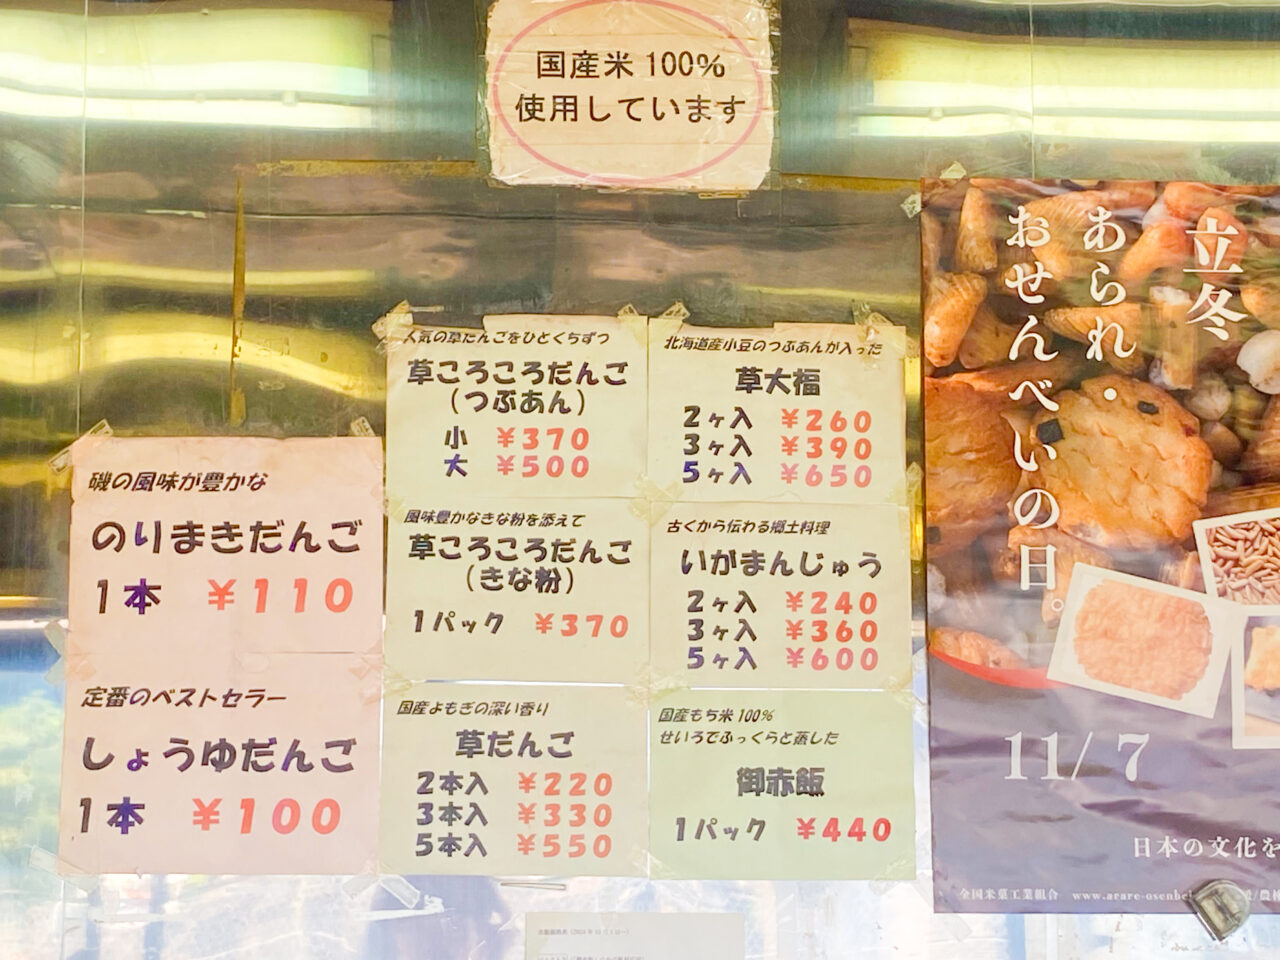 国産米100%
使用しています
磯の風味が豊かな
のりまきだんご
1本 ¥110
定番のベストセラー
しょうゆだんご
1本 ¥100
人気の草だんごをひとくちずつ
草ころころだんご
(つぶあん)
小 ¥370
大 ¥500
風味豊かなきな粉を添えて
草ころころだんご
(きな粉)
1パック ¥370
国産よもぎの深い香り
草だんご
2本入 ¥220
3本入 ¥330
5本入 ¥550
北海道産小豆のつぶあんが入った
草大福
2ヶ入 ¥260
3ヶ入 ¥390
5ヶ入 ¥650
古くから伝わる郷土料理
いがまんじゅう
2ヶ入 ¥240
3ヶ入 ¥360
5ヶ入 ¥600
国産もち米100%
せいろでふっくらと蒸した
御赤飯
1パック ¥440
立冬
あられ・
おせんべいの日。
11/7
日本の文化を
全国米菓工業組合 www.arare-osenbei